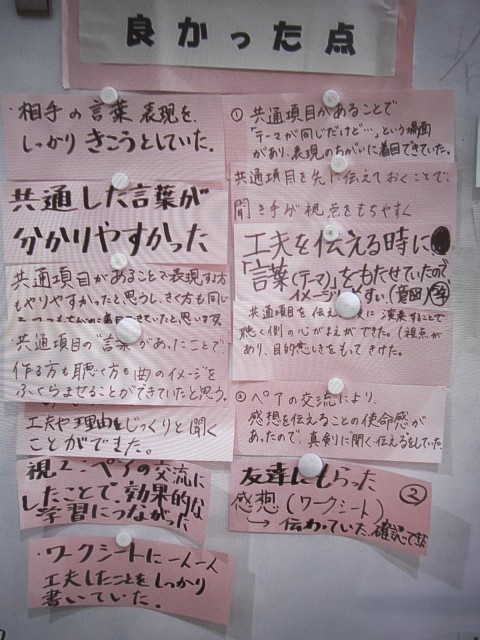 良かった点
・相手の言葉 表現を、
しっかり きこうとしていた。
共通した言葉が
分かりやすかった
共通項目があることで表現する方
もやりやすかったと思うし、きく方も同じ
・共通項目の言葉があったことで
作る方も聴く方も曲のイメージを
ふくらませることができていたと思う。
工夫や理由をじっくりと聞く
ことができた。
視2. ペアの交流に
したことで、効果的な
学習につながった
・ワークシートに一人一人
工夫したことをしっかり
書いていた。
① 共通項目があることで
「テーマが同じだけど…」という場面
があり、表現のちがいに着目できていた。
共通項目を先に伝えておくことで、
聞き手が視点をもちやすく
工夫を伝える時に
「言葉(テーマ)」をもたせていたので、
イメージしやすい(意図)
共通項目を伝え 演奏することで
聴く側の心がまえができた。(視点が
あり、目的意しきをもってきけた。
② ペアの交流により、
感想を伝えることの使命感が
あったので、真剣に聞く伝えるをしていた。
友達にもらった
感想(ワークシート) ②
→ 伝わっていた 確認できる